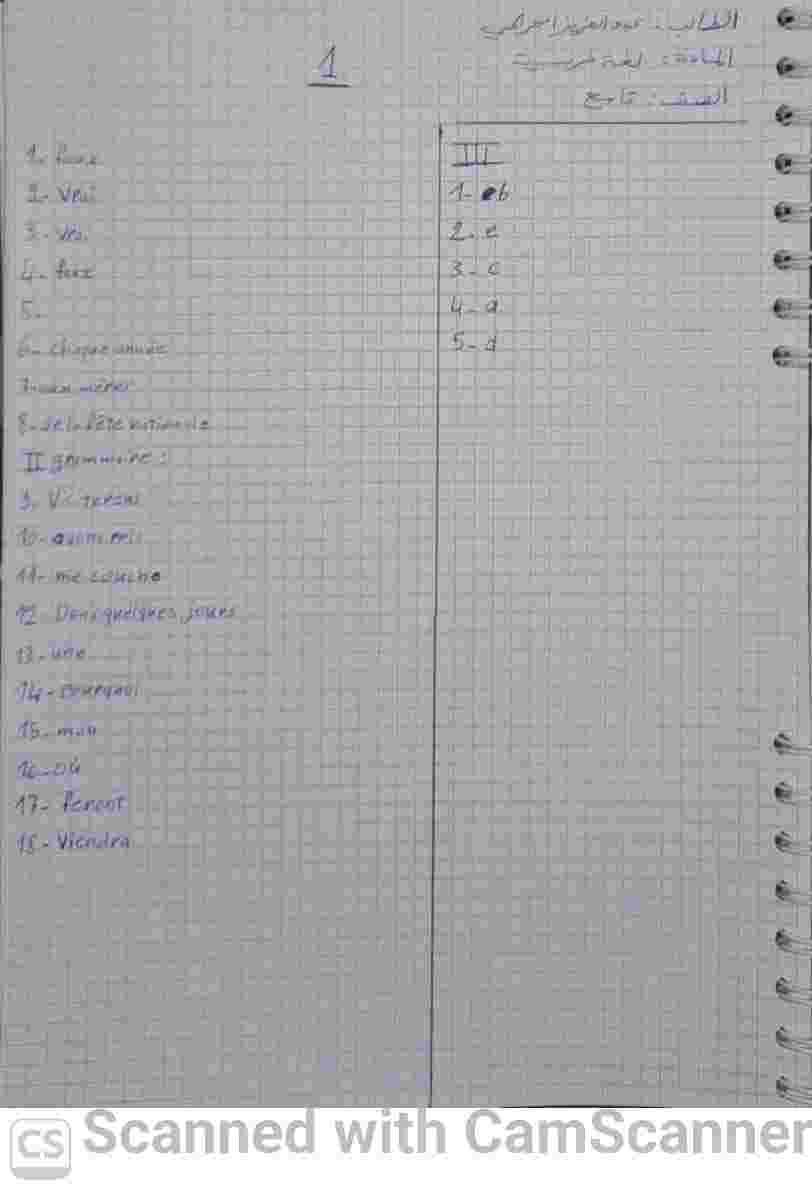 الطالب: عبدالعزيز
المادة: لغة فرنسية
الصف: تاسع
1
1- faux
2- Vrai
3- Vrai
4- faux
5-
6- chaque année
7- aux mères
8- de la fête nationale
II grammaire:
9-
10- avons pris
11- me couche
12- Dans quelques jours
13- une
14- Pourquoi
15- mon
16- où
17- feront
18- Viendra
III
1- b
2- e
3- c
4- a
5- d
CS Scanned with CamScanner